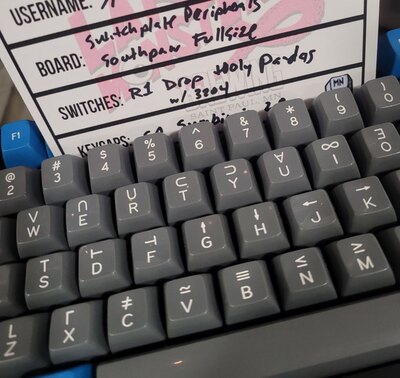 USERNAME:
Switchplate Peripherals
BOARD: Southpaw Fullsize
SWITCHES: R1 Drop Holy Pandas
w/ 3204
SAINT PAUL, MN
MN
KEYCAPS: SA
F1 @ 2 # 3 $ 4 % 5 ^ 6 & 7 * 8 ( 9 ) 0
∨ W ∩ E ∪ R ⊂ T ⊃ Y ∀ U ∞ I ∃ O
⊤ S ⊢ D ⊣ F ↑ G ↓ H ← J → K
⌊ Z ⌈ X ≠ C ≃ V ≡ B ≤ N ≥ M